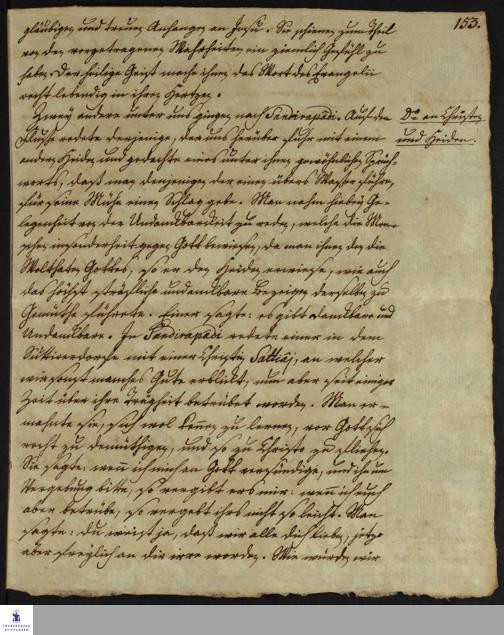 153.
gläubigen und treuen Anhangen an Jesu. Sie schienen zum Theil
von den vorgetragenen Wahrheiten ein ziemlich Gefühl zu
haben. Der heilige Geist mache ihnen das Wort des Evangelii
recht lebendig in ihren Hertzen.
Zwey andere unter uns gingen nach Sandirapadi. Auf dem
Do an Christen
und Heiden.
Fluße redete derjenige, der uns herüber fuhr mit einem
andern Heiden und gedachte eines unter ihnen gewöhnlichen Sprüch-
worts, daß man demjenigen der einen übers Waßer führe,
für seine Mühe einen Schlag gebe. Man nahm hiebey Ge-
legenheit von der Undanckbarkeit zu reden, welche die Men-
schen insonderheit gegen Gott beweisen, da man ihnen denn die
Wolthaten Gottes, so er den Heiden erweise, wie auch
das höchst sträfliche undanckbare Bezeigen derselben zu
Gemüthe führete. Einer sagte: es gibt danckbare und
Undanckbare. In Sandirapadi redete einer in dem
dorfe mit einer Christin Sattiaj, an welcher
wir sonst manches Gute erblickt, nun aber seit einiger
Zeit über ihre Trägheit betrübet worden. Man er-
mahnte sie, sich wol kennen zu lernen, vor Gott sich
recht zu demüthigen, und so zu Christo zu fliehen.
Sie sagte: wenn ich mich an Gott versündige, und ihn um
Vergebung bitte, so vergibt ers mir: wenn ich euch
aber betrübe, so vergebt ihrs nicht so leicht. Man
sagte: du weist ja, daß wir alle dich lieben, jetzo
aber freylich an dir irre worden. Wie würden wir
FRANCKESCHE
STIFTUNGEN